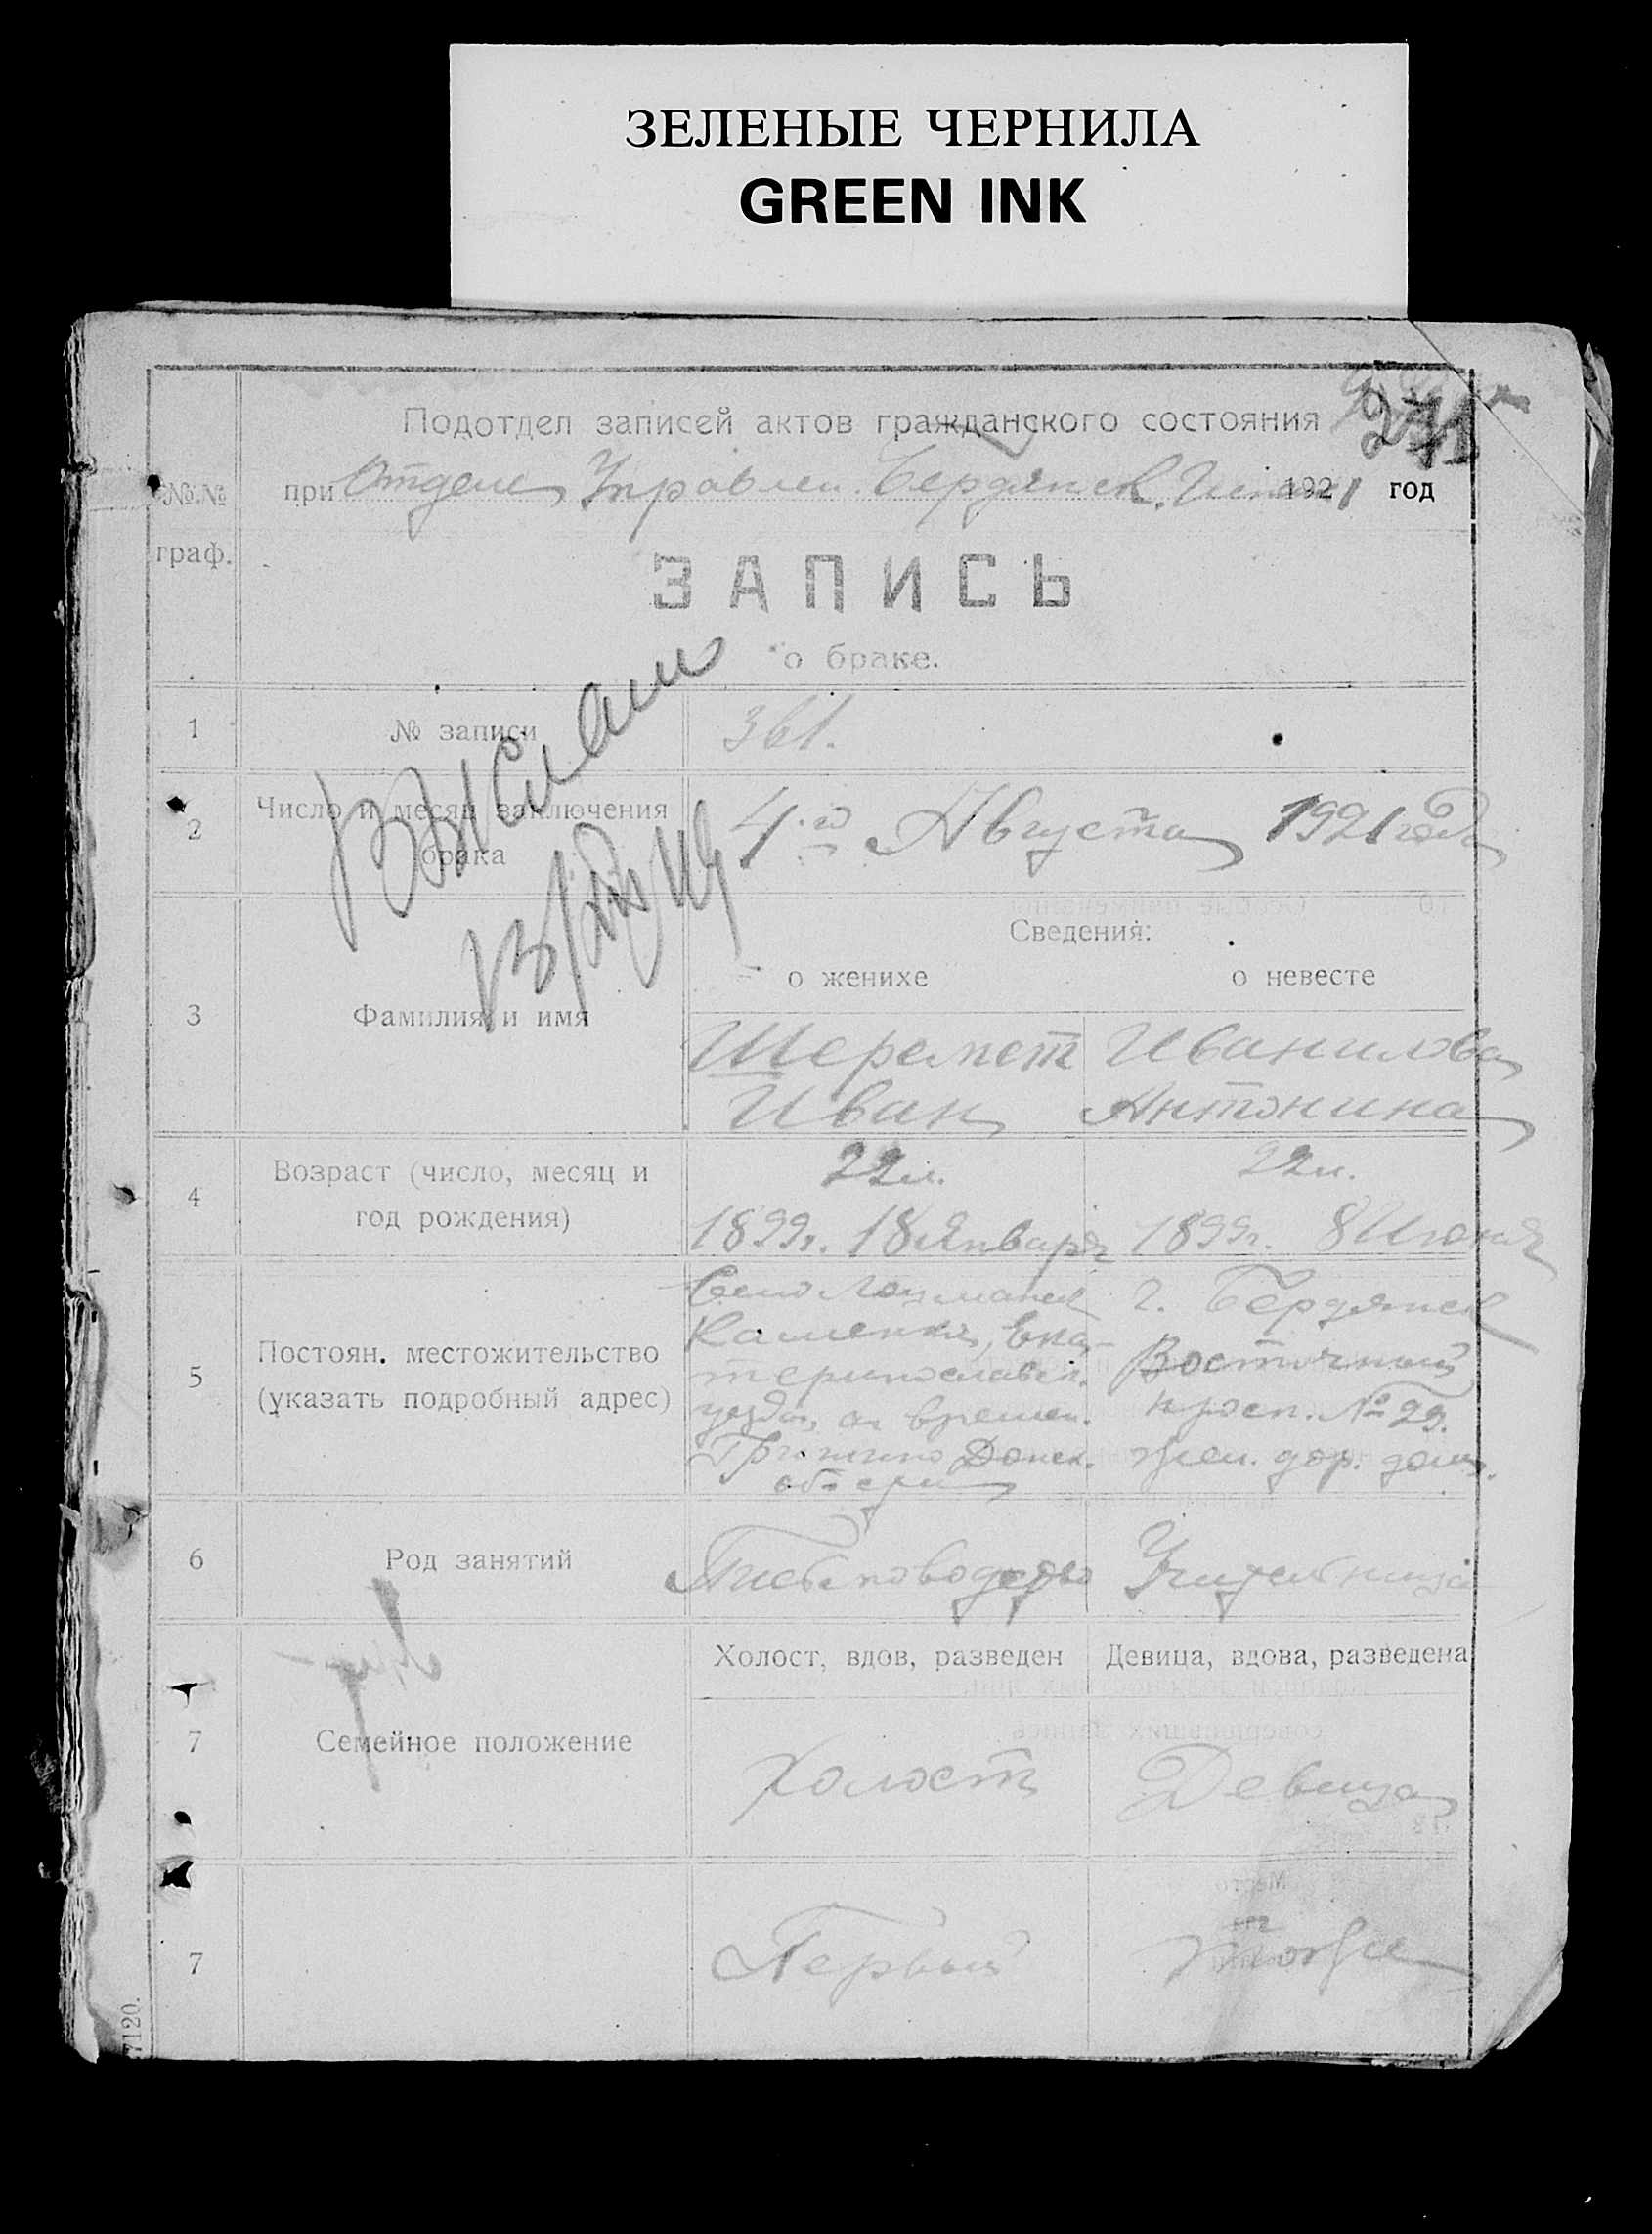 ЗЕЛЕНЫЕ ЧЕРНИЛА
GREEN INK
Подотдел записей актов гражданского состояния
№.№ при Отделе Управлен. Бердянск. 1921 год
граф.
ЗАПИСЬ
о браке.
1 № записи 361.
2 Число и месяц заключения
брака
4-го Августа 1921 года
Сведения:
о женихе о невесте
3 Фамилия и имя
Шеремет Иванилова
Иван Антонина
4 Возраст (число, месяц и
год рождения)
22 л. 22 л.
1899 г. 18 Января 1899 г. 8 Июня
5 Постоян. местожительство
(указать подробный адрес)
Село Лоцманск. г. Бердянск
Каменка, Ека- Восточный
теринославск. просп. № 29.
уезда, а времен. жел. дор. дом.
Гришино Донск.
области
6 Род занятий Счетоводство Учительница
Холост, вдов, разведен Девица, вдова, разведена
7 Семейное положение
Холост Девица
7 Первый тоже
7120.